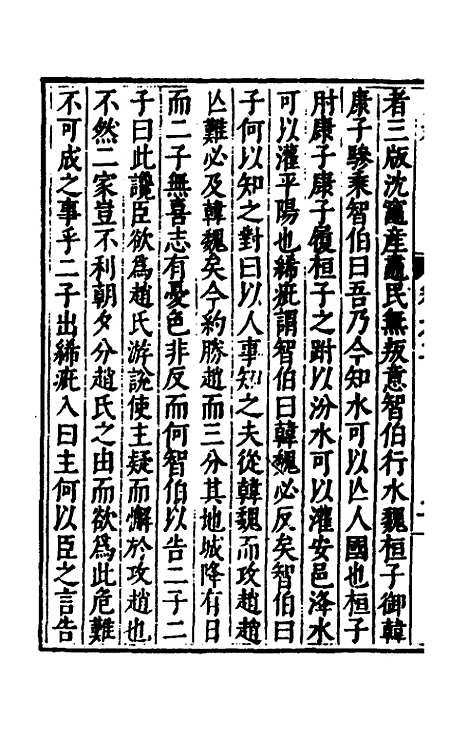 者三版沈竈産鼃民無叛意智伯行水魏桓子御韓
康子驂乘智伯曰吾乃今知水可以亾人國也桓子
肘康子康子履桓子之跗以汾水可以灌安邑洚水
可以灌平陽也絺疵謂智伯曰韓魏必反矣智伯曰
子何以知之對曰以人事知之夫從韓魏而攻趙趙
亾難必及韓魏矣今約勝趙而三分其地城降有日
而二子無喜志有憂色非反而何智伯以告二子二
子曰此讒臣欲爲趙氏游說使主疑而懈於攻趙也
不然二家豈不利朝夕分趙氏之田而欲爲此危難
不可成之事乎二子出絺疵入曰主何以臣之言告